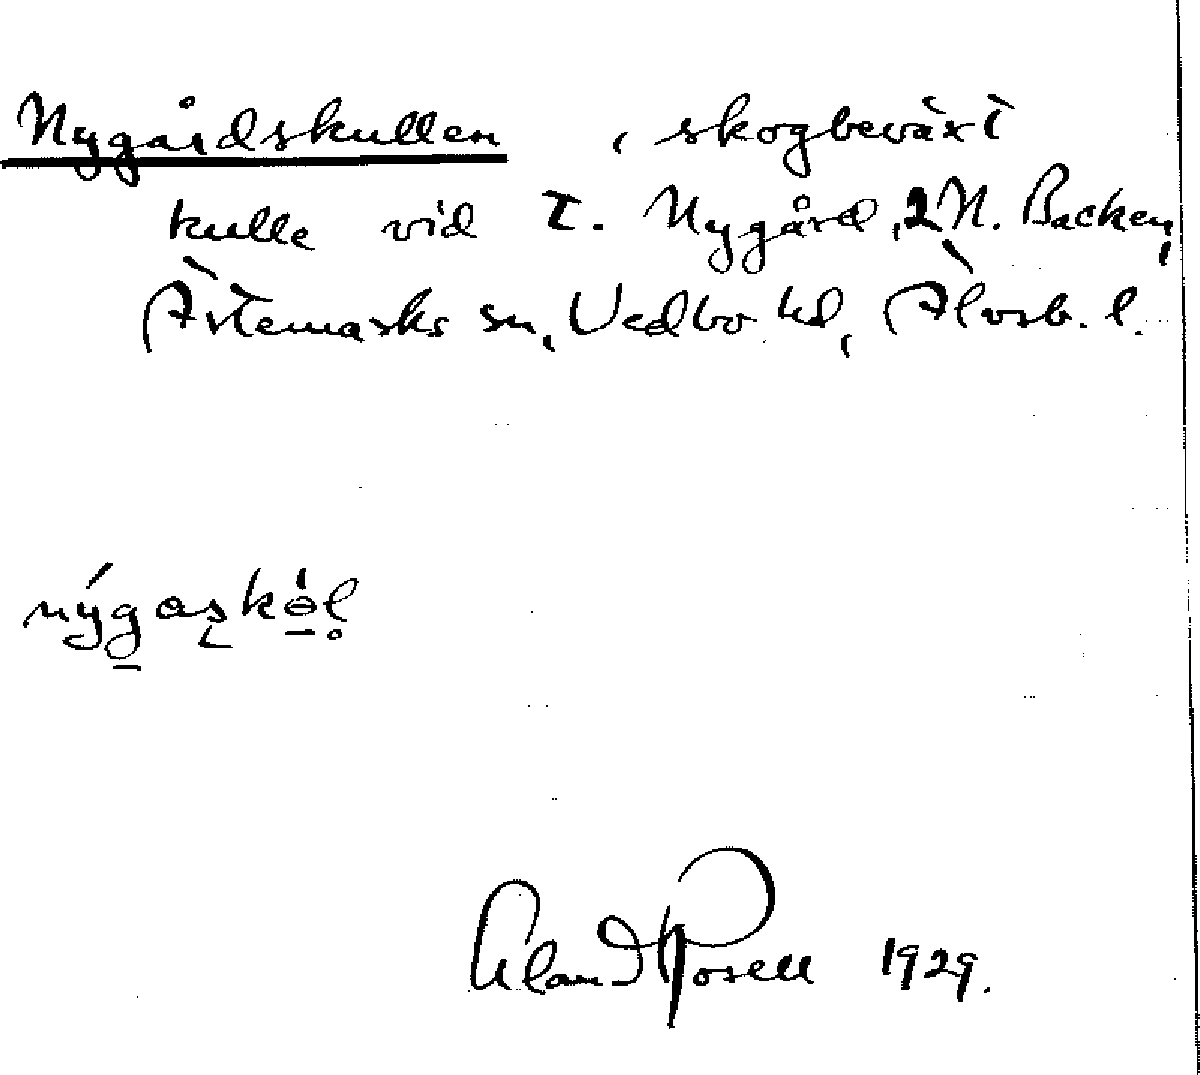 Nygårdskullen, skogbeväxt
kulle vid t. Nygård, 2 N. Backen,
Ärtemarks sn, Vedbo hd, Älvsb. l.
Rosell 1929.